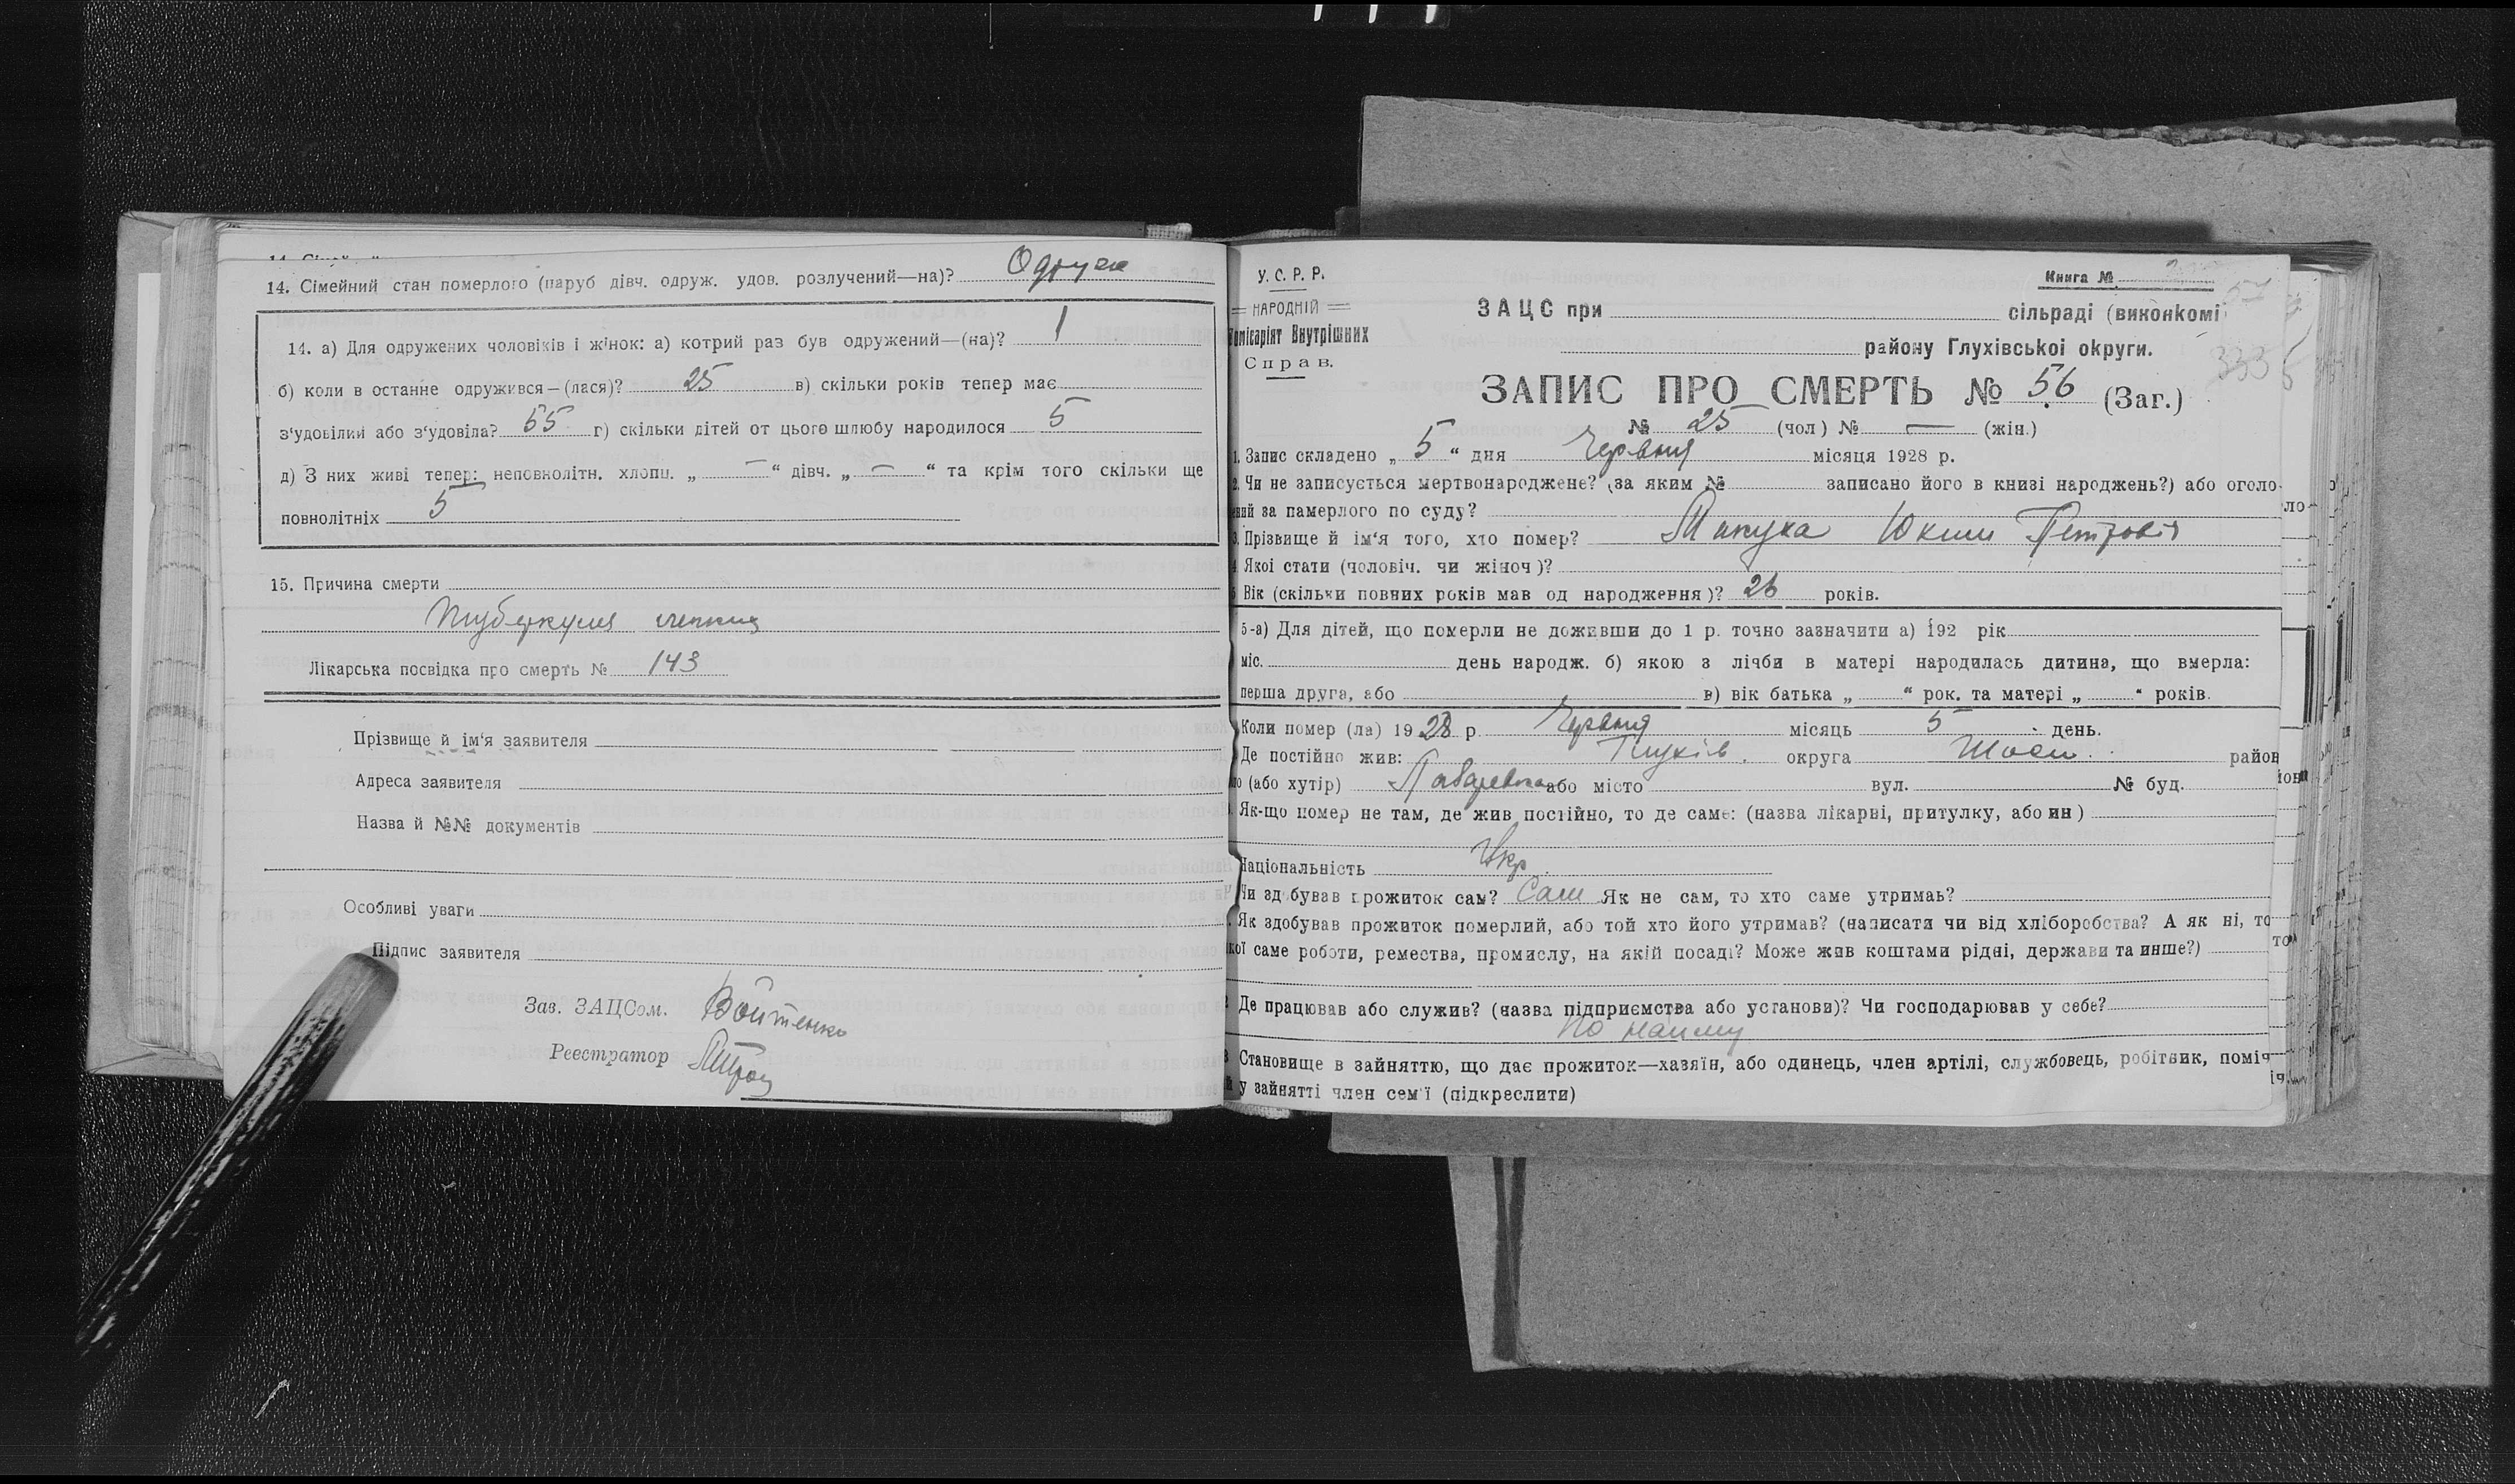 14. Сімейний стан померлого (паруб дівч. одруж. удов. розлучений—на)? Одруж
14. а) Для одружених чоловіків і жінок: а) котрий раз був одружений—(на)? 1
б) коли в останне одружився—(лася)? 25 в) скільки років тепер має
з'удовілий або з'удовіла? 55 г) скільки дітей от цього шлюбу народилося 5
д) З них живі тепер: неповнолітн. хлопц. „ — “ дівч. „ — “ та крім того скільки ще
повнолітніх 5
15. Причина смерти
Туберкулез легких
Лікарська посвідка про смерть № 143
Прізвище й ім'я заявителя
Адреса заявителя
Назва й №№ документів
Особливі уваги
Підпис заявителя
Зав. ЗАЦСом. Войтенко
Реєстратор
У. С. Р. Р.
НАРОДНІЙ
Комісаріят Внутрішних
Справ.
Книга №
57
ЗАЦС при сільраді (виконкомі
району Глухівської округи.
ЗАПИС ПРО СМЕРТЬ № 56 (Заг.)
№ 25 (чол) № — (жін.)
1. Запис складено „ 5 “ дня Червня місяця 1928 р.
2. Чи не записується мертвонароджене? (за яким № записано його в книзі народжень?) або оголо-
ений за памерлого по суду?
3. Прізвище й ім'я того, хто помер? Юхим Петрович
Якої стати (чоловіч. чи жіноч)?
Вік (скільки повних років мав од народження)? 26 років.
5-а) Для дітей, що померли не доживши до 1 р. точно зазначити а) 192 рік
міс. день народж. б) якою з лічби в матері народилась дитина, що вмерла:
перша друга, або в) вік батька „ “ рок. та матері „ “ років.
Коли помер (ла) 1928 р. Червня місяць 5 день.
Де постійно жив: Глухів. округа район
(або хутір) або місто вул. № буд.
Як-що помер не там, де жив постійно, то де саме: (назва лікарні, притулку, або ин)
Національність Укр.
Чи здобував прожиток сам? Сам Як не сам, то хто саме утримав?
Як здобував прожиток померлий, або той хто його утримав? (написати чи від хліборобства? А як ні, то
кої саме роботи, ремества, промислу, на якій посаді? Може жив коштами рідні, держави та инше?)
Де працював або служив? (назва підприємства або установи)? Чи господарював у себе?
По найму
Становище в зайняттю, що дає прожиток—хазяїн, або одинець, член артілі, службовець, робітник, поміч
у зайнятті член сем'ї (підкреслити)